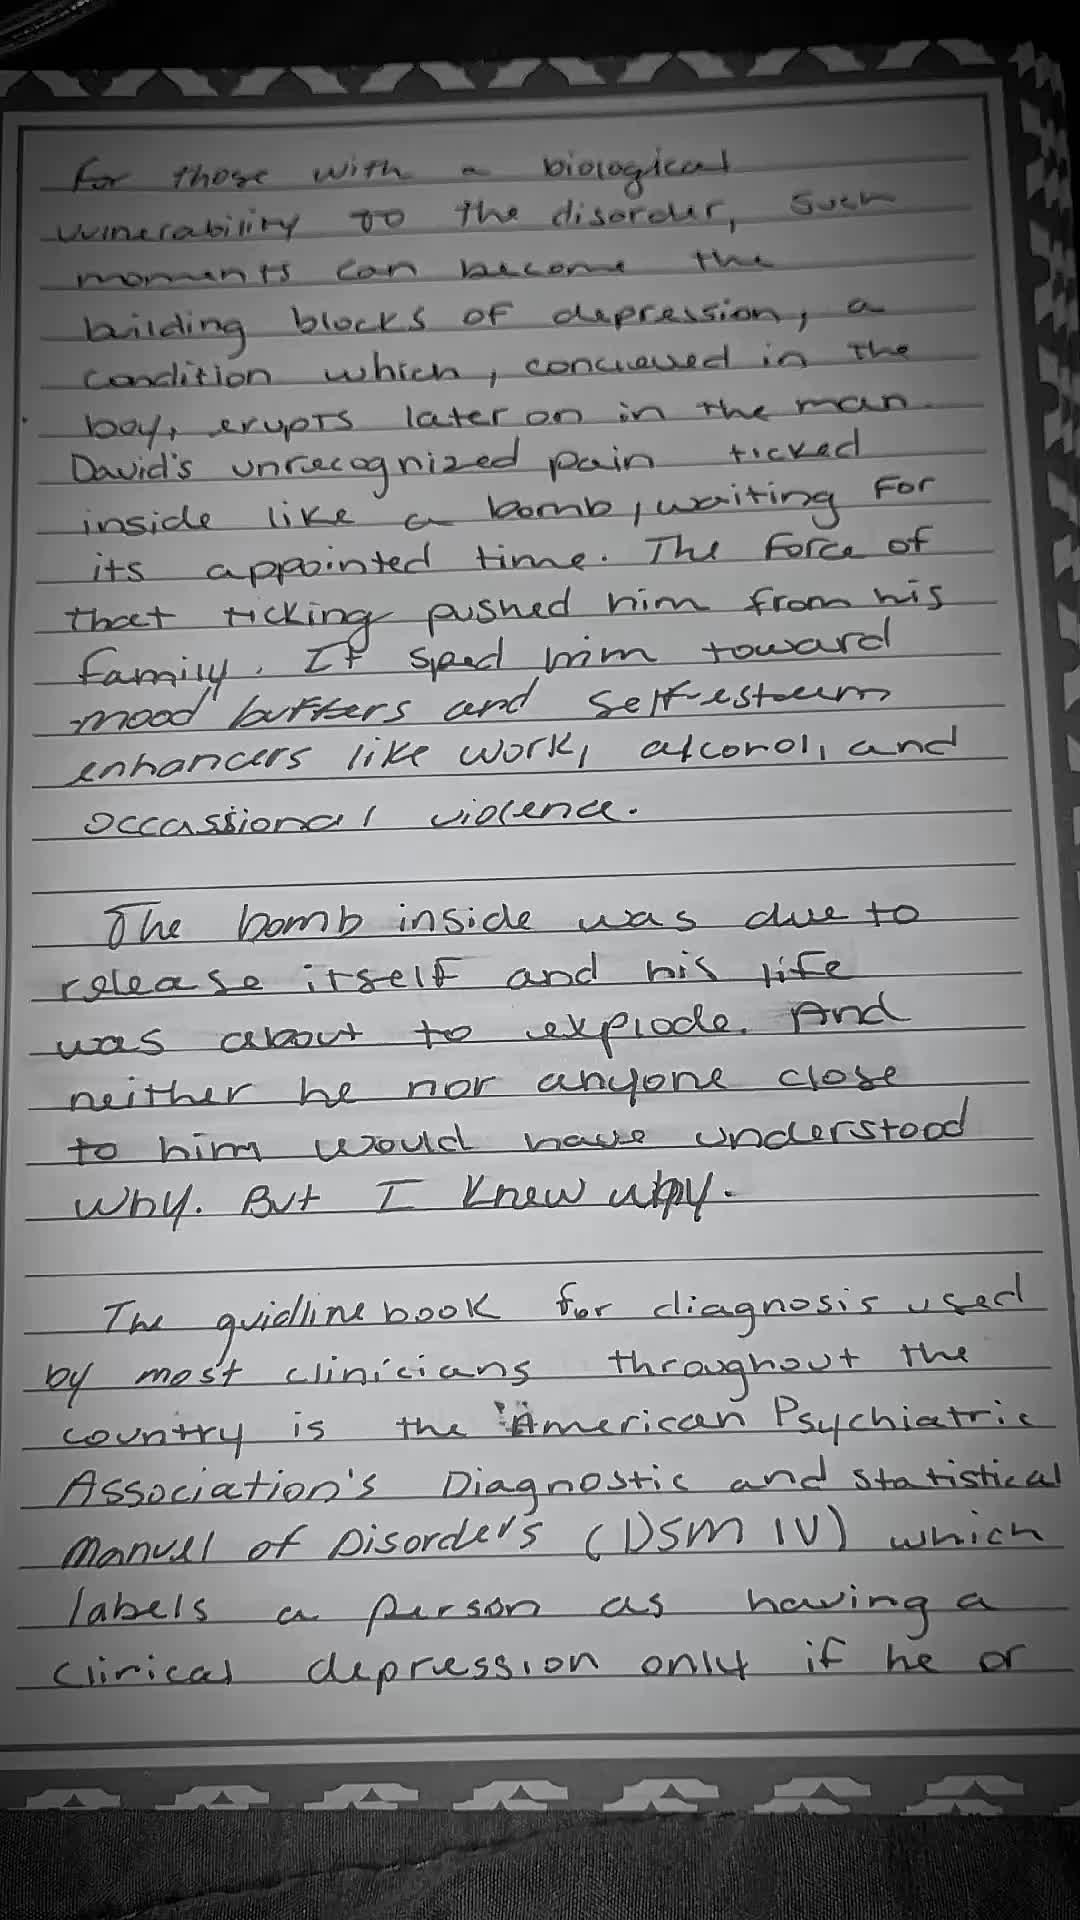 for those with a biological
vulnerability to the disorder, such
moments can become the
building blocks of depression, a
condition which, concieved in the
boy, erupts later on in the man.
David's unrecognized pain ticked
inside like a bomb, waiting for
its appointed time. The force of
that ticking pushed him from his
family. It sped him toward
mood buffers and self-esteem
enhancers like work, alcohol, and
occassional violence.
The bomb inside was due to
release itself and his life
was about to explode. And
neither he nor anyone close
to him would have understood
why. But I knew why.
The guidline book for diagnosis used
by most clinicians throughout the
country is the American Psychiatric
Association's Diagnostic and Statistical
Manuel of Disorders (DSM IV) which
labels a person as having a
clinical depression only if he or